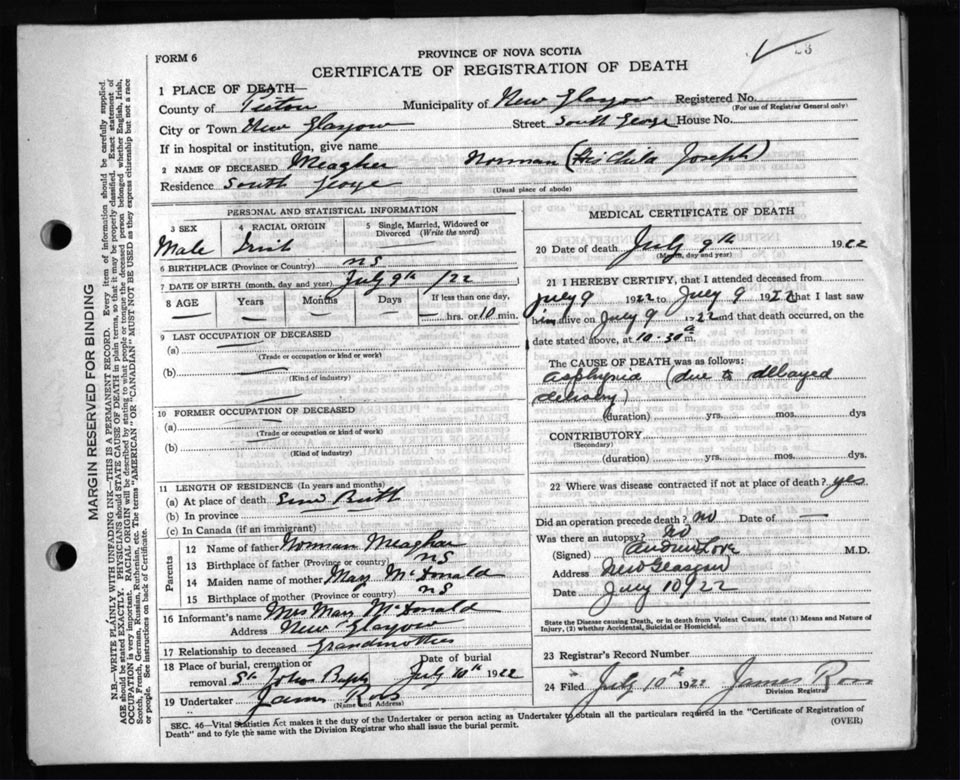 FORM 6
PROVINCE OF NOVA SCOTIA
CERTIFICATE OF REGISTRATION OF DEATH
1 PLACE OF DEATH—
County of Pictou Municipality of New Glasgow Registered No.
(For use of Registrar General only)
City or Town New Glasgow Street South George House No.
If in hospital or institution, give name
2 NAME OF DECEASED Meagher Norman (His Child Joseph)
Residence South George
(Usual place of abode)
PERSONAL AND STATISTICAL INFORMATION
3 SEX 4 RACIAL ORIGIN 5 Single, Married, Widowed or Divorced (Write the word)
Male Irish
6 BIRTHPLACE (Province or Country) NS
7 DATE OF BIRTH (month, day and year) July 9th /22
8 AGE Years Months Days If less than one day,
— — — — — hrs. or 10 min.
9 LAST OCCUPATION OF DECEASED
(a)
(Trade or occupation or kind or work)
(b)
(Kind of industry)
10 FORMER OCCUPATION OF DECEASED
(a)
(Trade or occupation or kind of work)
(b)
(Kind of industry)
11 LENGTH OF RESIDENCE (In years and months)
(a) At place of death Since Birth
(b) In province
(c) In Canada (if an immigrant)
Parents
12 Name of father Norman Meagher
13 Birthplace of father (Province or country) NS
14 Maiden name of mother Mary McDonald
15 Birthplace of mother (Province or country) NS
16 Informant's name Mrs Mary McDonald
Address New Glasgow
17 Relationship to deceased Grandmother
18 Place of burial, cremation or Date of burial
removal St John Bapt July 10th 1922
19 Undertaker James Ross
(Name and Address)
MEDICAL CERTIFICATE OF DEATH
20 Date of death July 9th 1922
(Month, day and year)
21 I HEREBY CERTIFY, that I attended deceased from
July 9 1922 to July 9 1922 that I last saw
him alive on July 9 1922 and that death occurred, on
date stated above, at 10-30 a m.
The CAUSE OF DEATH was as follows:
Asphyxia (due to delayed
delivery)
(duration) yrs. mos. dys
CONTRIBUTORY
(Secondary)
(duration) yrs. mos. dys.
22 Where was disease contracted if not at place of death? yes
Did an operation precede death? no Date of —
Was there an autopsy? no
(Signed) Andrew Love M.D.
Address New Glasgow
Date July 10/22
State the Disease causing Death, or in death from Violent Causes, state (1) Means and Nature of Injury, (2) whether Accidental, Suicidal or Homicidal.
23 Registrar's Record Number
24 Filed July 10th 1922 James Ross
Division Registrar
SEC. 46—Vital Statistics Act makes it the duty of the Undertaker or person acting as Undertaker to obtain all the particulars required in the "Certificate of Registration of
Death" and to fyle the same with the Division Registrar who shall issue the burial permit.
(OVER)
MARGIN RESERVED FOR BINDING
N.B.—WRITE PLAINLY WITH UNFADING INK—THIS IS A PERMANENT RECORD. Every item of information should be carefully supplied.
AGE should be stated EXACTLY. PHYSICIANS should STATE CAUSE OF DEATH in plain terms, so that it may be properly classified. Exact statement of
OCCUPATION is very important. RACIAL ORIGIN will be described by stating to what people or tongue the deceased person belonged whether English, Irish,
Scotch, French, German, Russian, Ruthenian, etc. The terms "AMERICAN" OR "CANADIAN" MUST NOT BE USED as they express citizenship but not a race
or people. See instructions on back of Certificate.